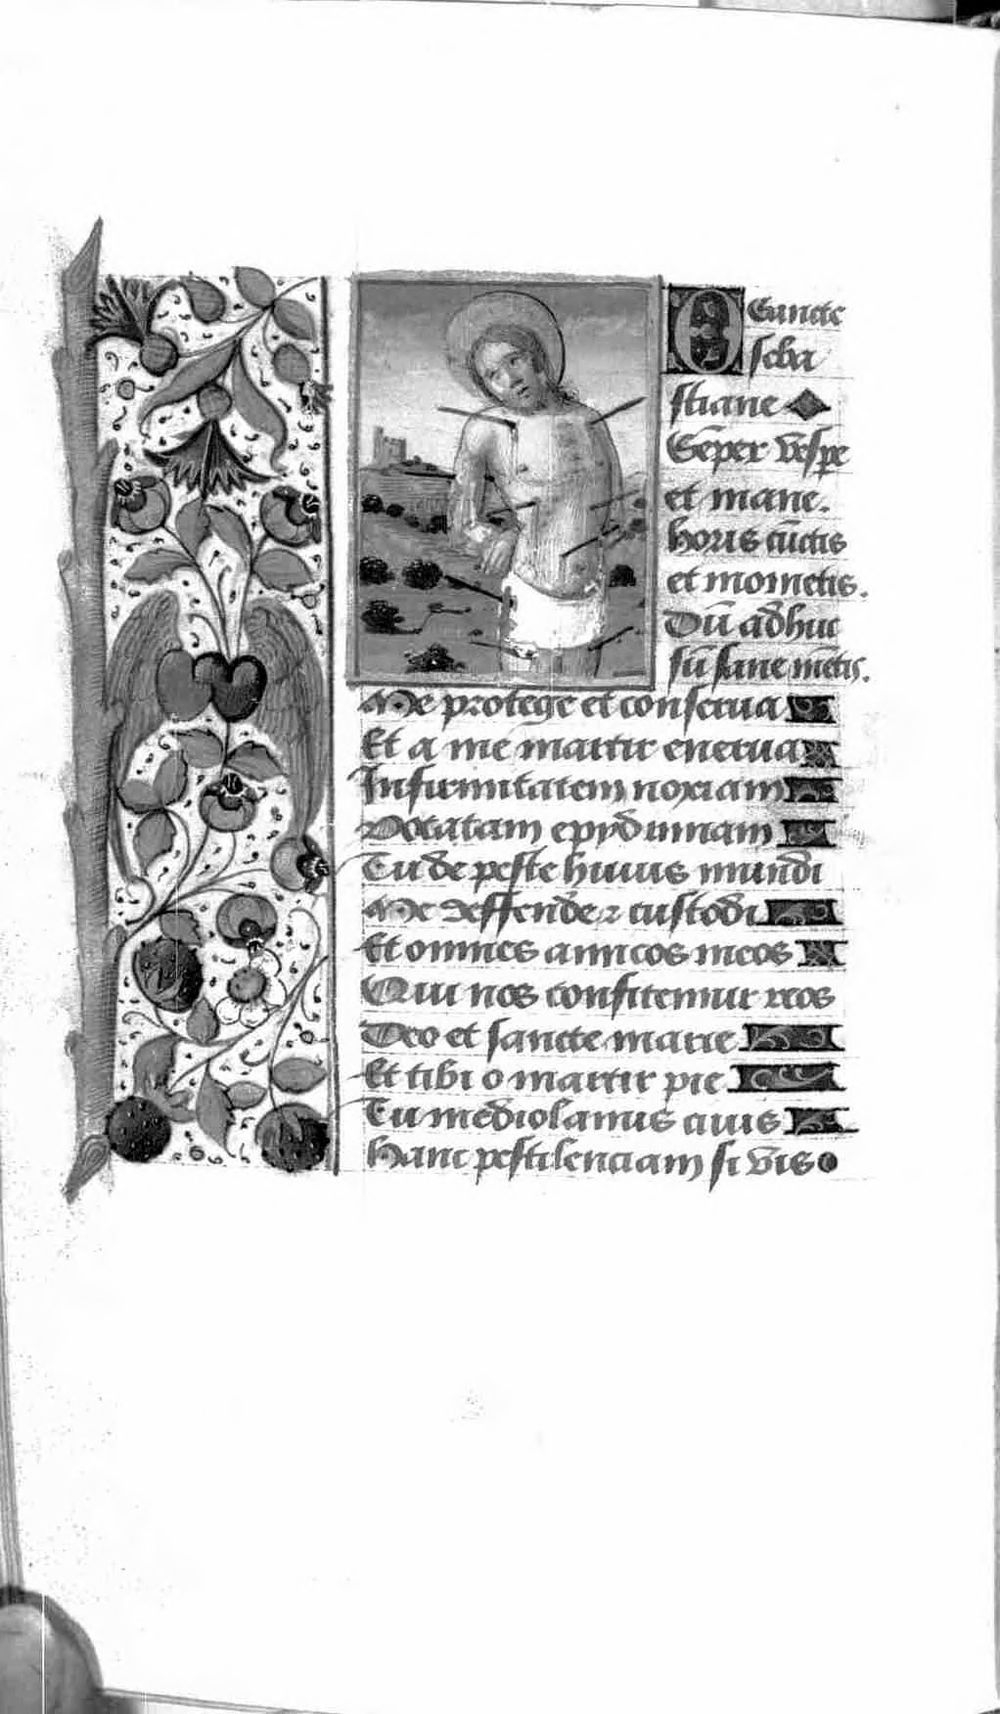 O Sancte
seba
stiane
Sēper vespe
et mane.
horis cūctis
et mometis.
Dū adhuc
sū sane mētis.
Me protege et conserua
Et a me martir enerua
Infirmitatem noxiam
Vocatam epydimiam
Tu de peste huius mundi
Me deffende ⁊ custodi
Et omnes amicos meos
Qui nos confitemur reos
Deo et sancte marie
Et tibi o martir pie
Tu mediolanus ciuis
Hanc pestilenciam si vis